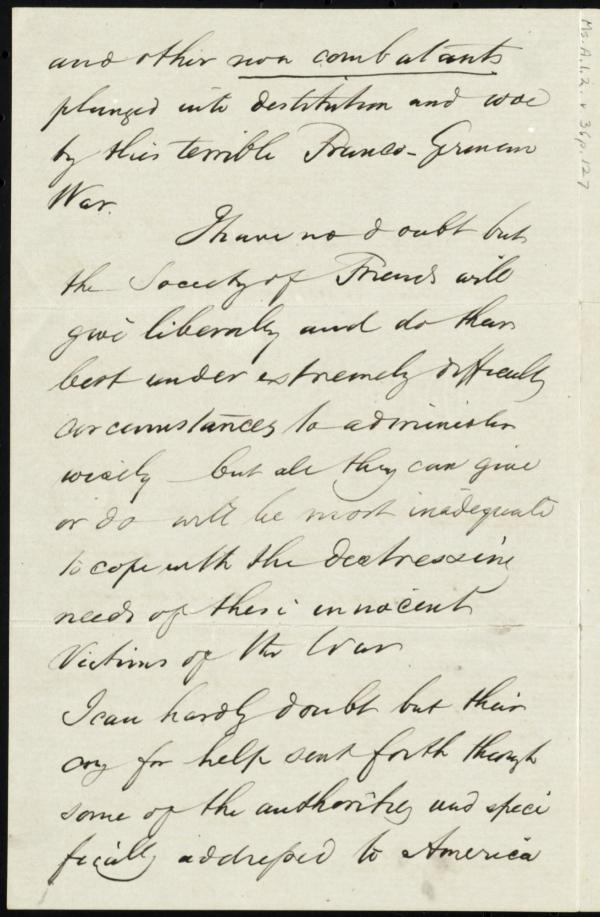 and other non combatants
plunged into destitution and woe
by this terrible Franco-German
War.
I have no doubt but
the Society of Friends will
give liberally and do their
best under extremely difficult
circumstances to administer
wisely but all they can give
or do will be most inadequate
to cope with the distressing
needs of these innocent
Victims of the War
I can hardly doubt but their
cry for help sent forth through
some of the authorities and speci
fically addressed to America
Ms.A.1.2.v.36p.127